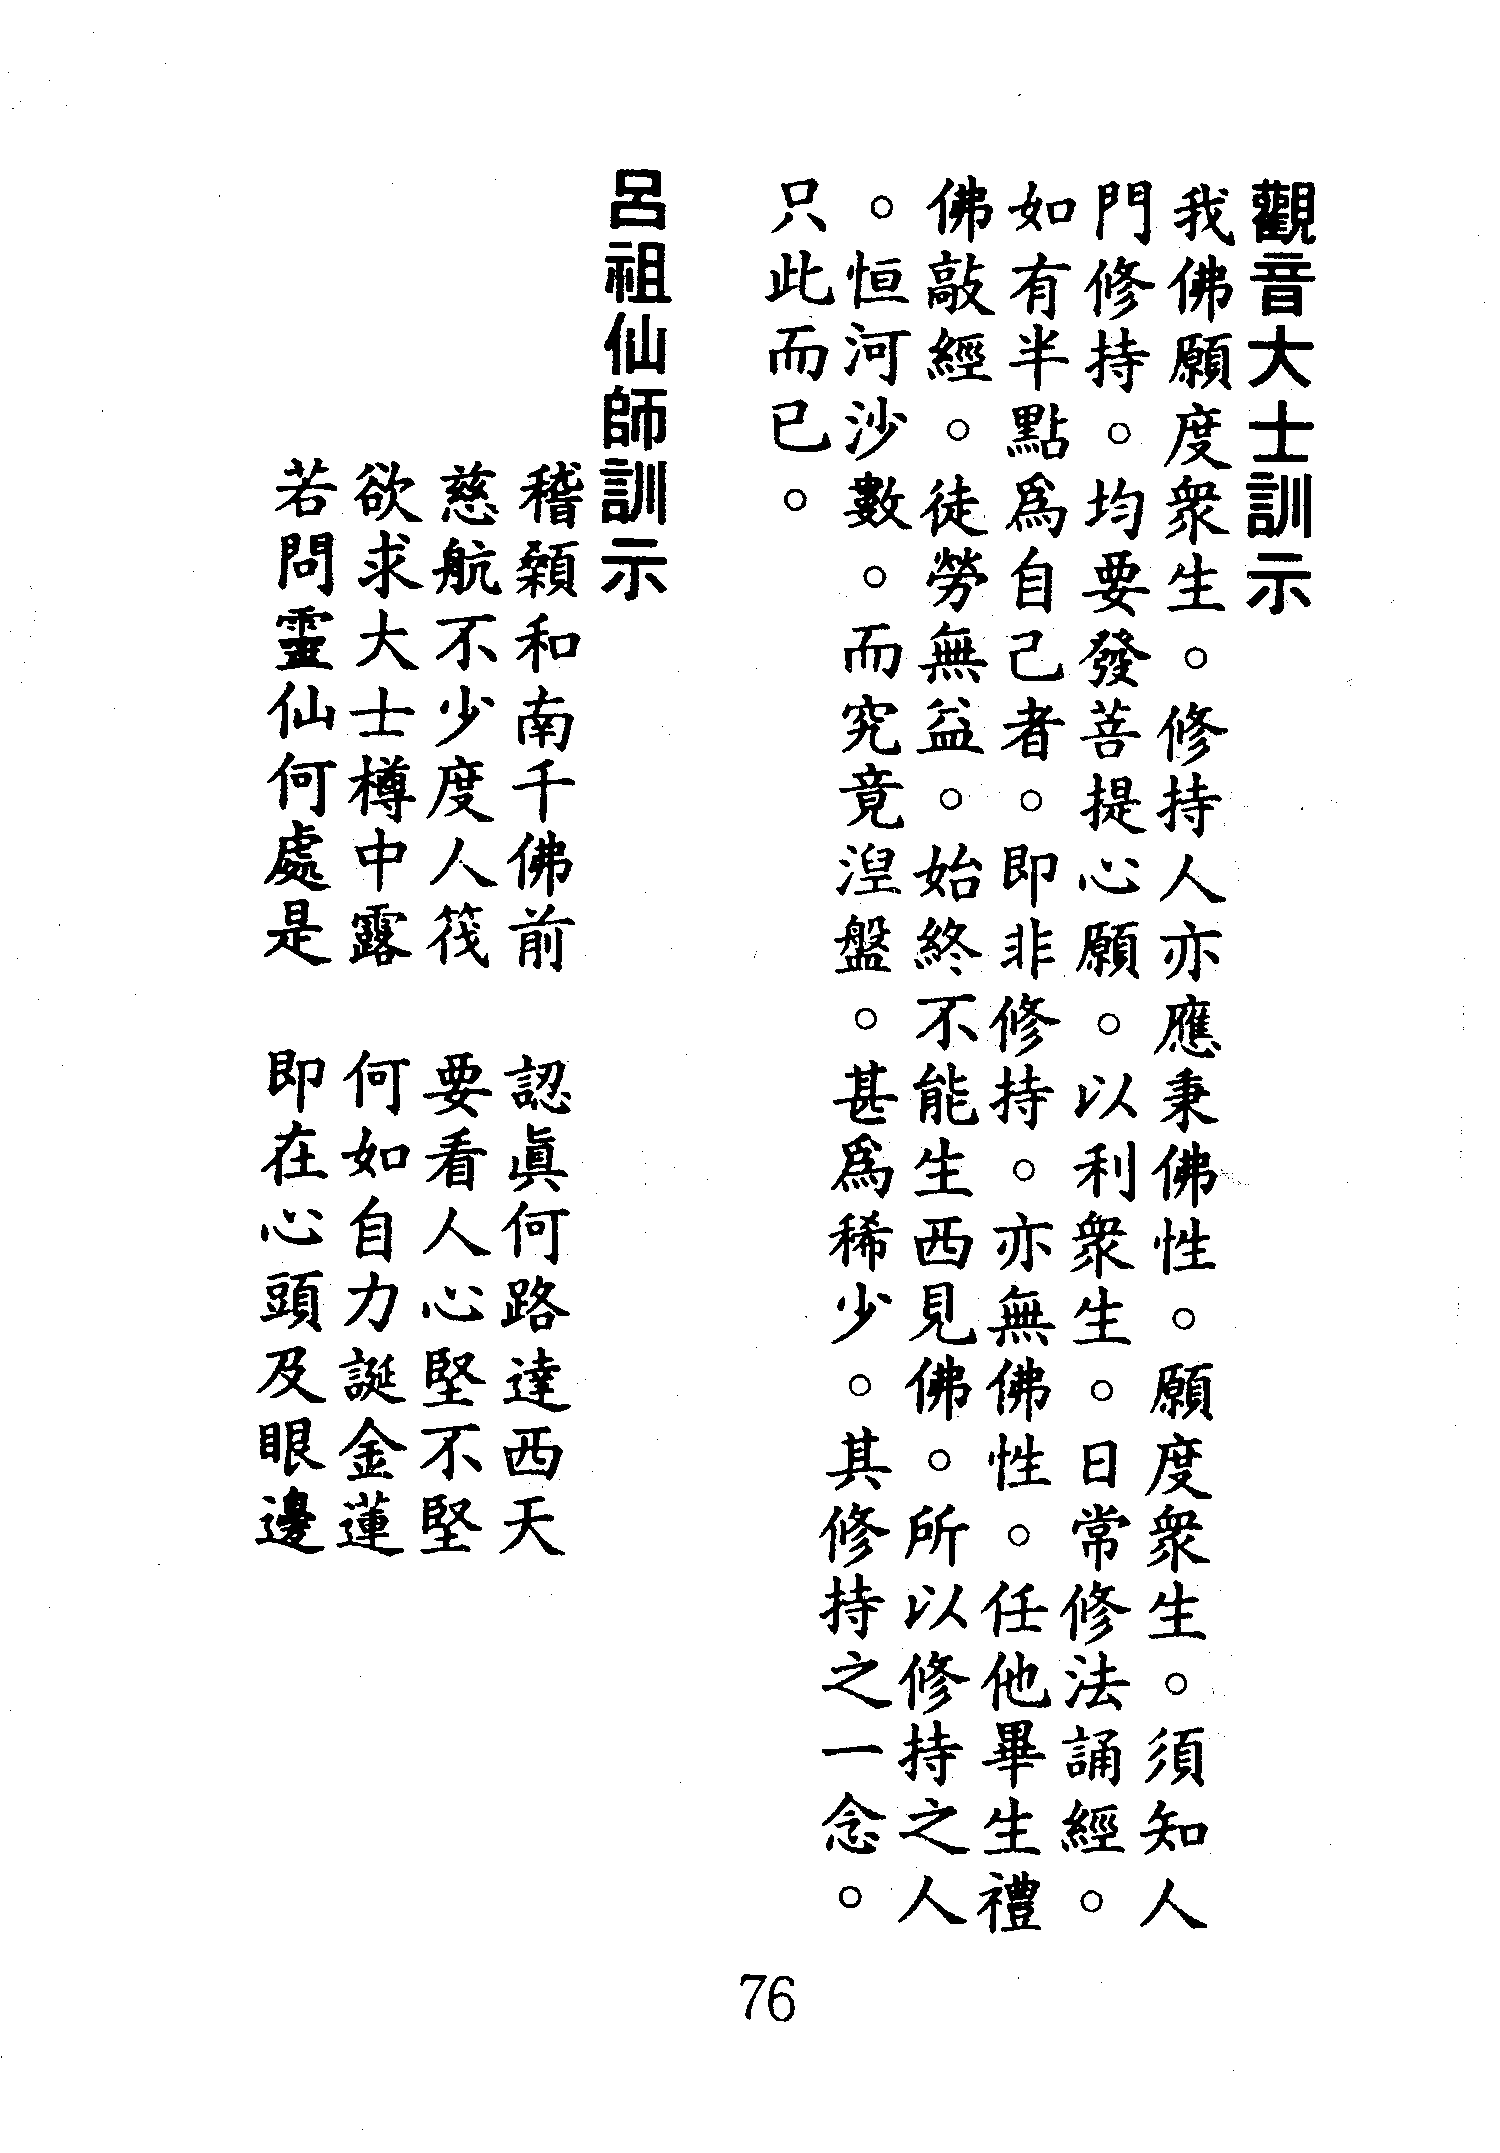 觀音大士訓示
我佛願度衆生。修持人亦應秉佛性。願度衆生。須知人
門修持。均要發菩提心願。以利衆生。日常修法誦經。
如有半點爲自己者。即非修持。亦無佛性。任他畢生禮
佛敲經。徒勞無益。始終不能生西見佛。所以修持之人
。恒河沙數。而究竟湼盤。甚爲稀少。其修持之一念。
只此而已。
呂祖仙師訓示
稽顙和南千佛前　認眞何路達西天
慈航不少度人筏　要看人心堅不堅
欲求大士樽中露　何如自力誕金蓮
若問靈仙何處是　即在心頭及眼邊
76